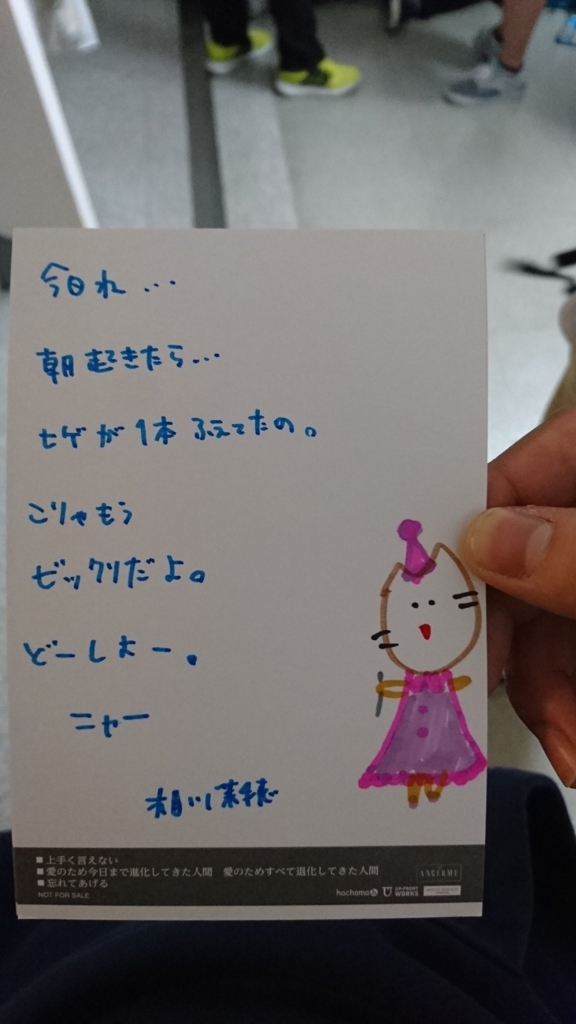 今日ね…
朝起きたら…
ヒゲが1本ふえてたの。
こりゃもう
ビックリだよ。
どーしよー。
ニャー
相川茉穂
■上手く言えない
■愛のため今日まで進化してきた人間 愛のためすべて退化してきた人間
■忘れてあげる
NOT FOR SALE
ANGERME
hachama
UP-FRONT WORKS